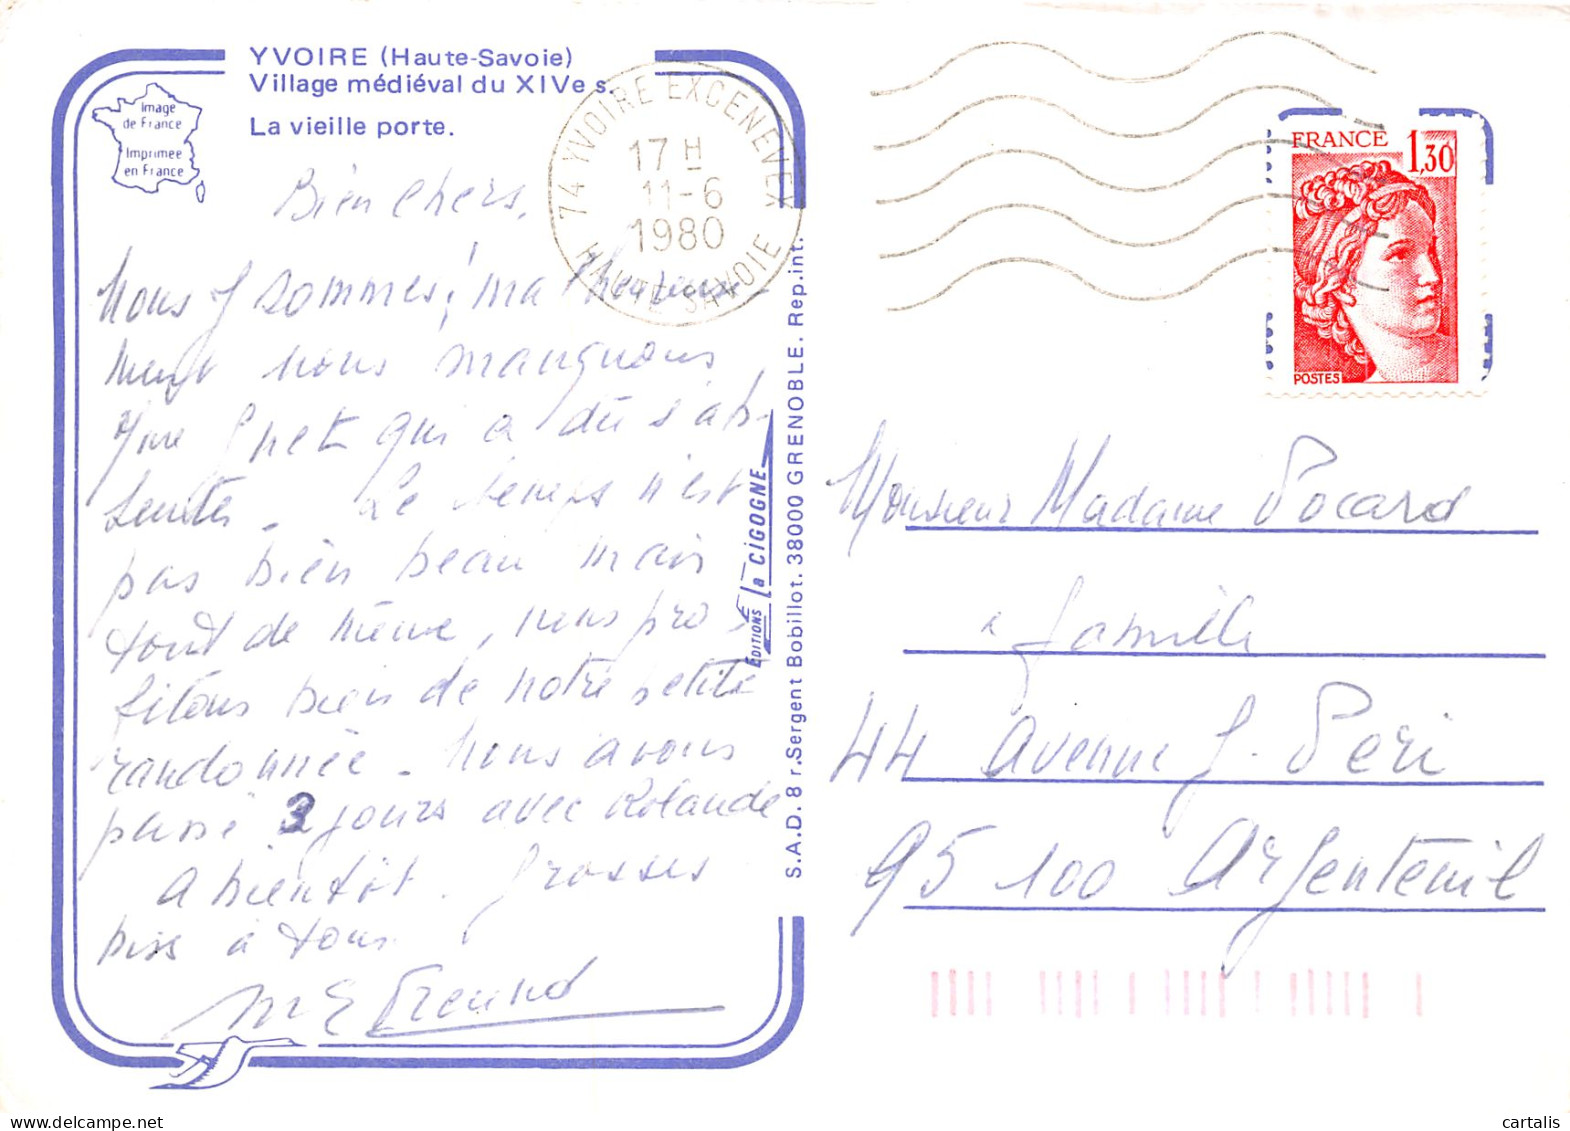 YVOIRE (Haute-Savoie)
Village médiéval du XIVe s.
La vieille porte.
Image
de France
Imprimée
en France
74 YVOIRE EXCENEVEX
17 H
11-6
1980
HAUTE-SAVOIE
FRANCE
1,30
POSTES
Bien Chers,
Nous y sommes, malheureuse
ment nous manquons
qui a dû s'ab-
senter. Le temps n'est
pas bien beau mais
tout de même, nous pro
fitons bien de notre petite
randonnée. Nous avons
passé 3 jours avec Rolande
A bientôt. Grosses
bises à tous.
EDITIONS La CIGOGNE
S.A.D. 8 r. Sergent Bobillot. 38000 GRENOBLE. Rep.int.
Monsieur Madame Pocard
& famille
44 avenue G. Péri
95100 Argenteuil
cartalis.com